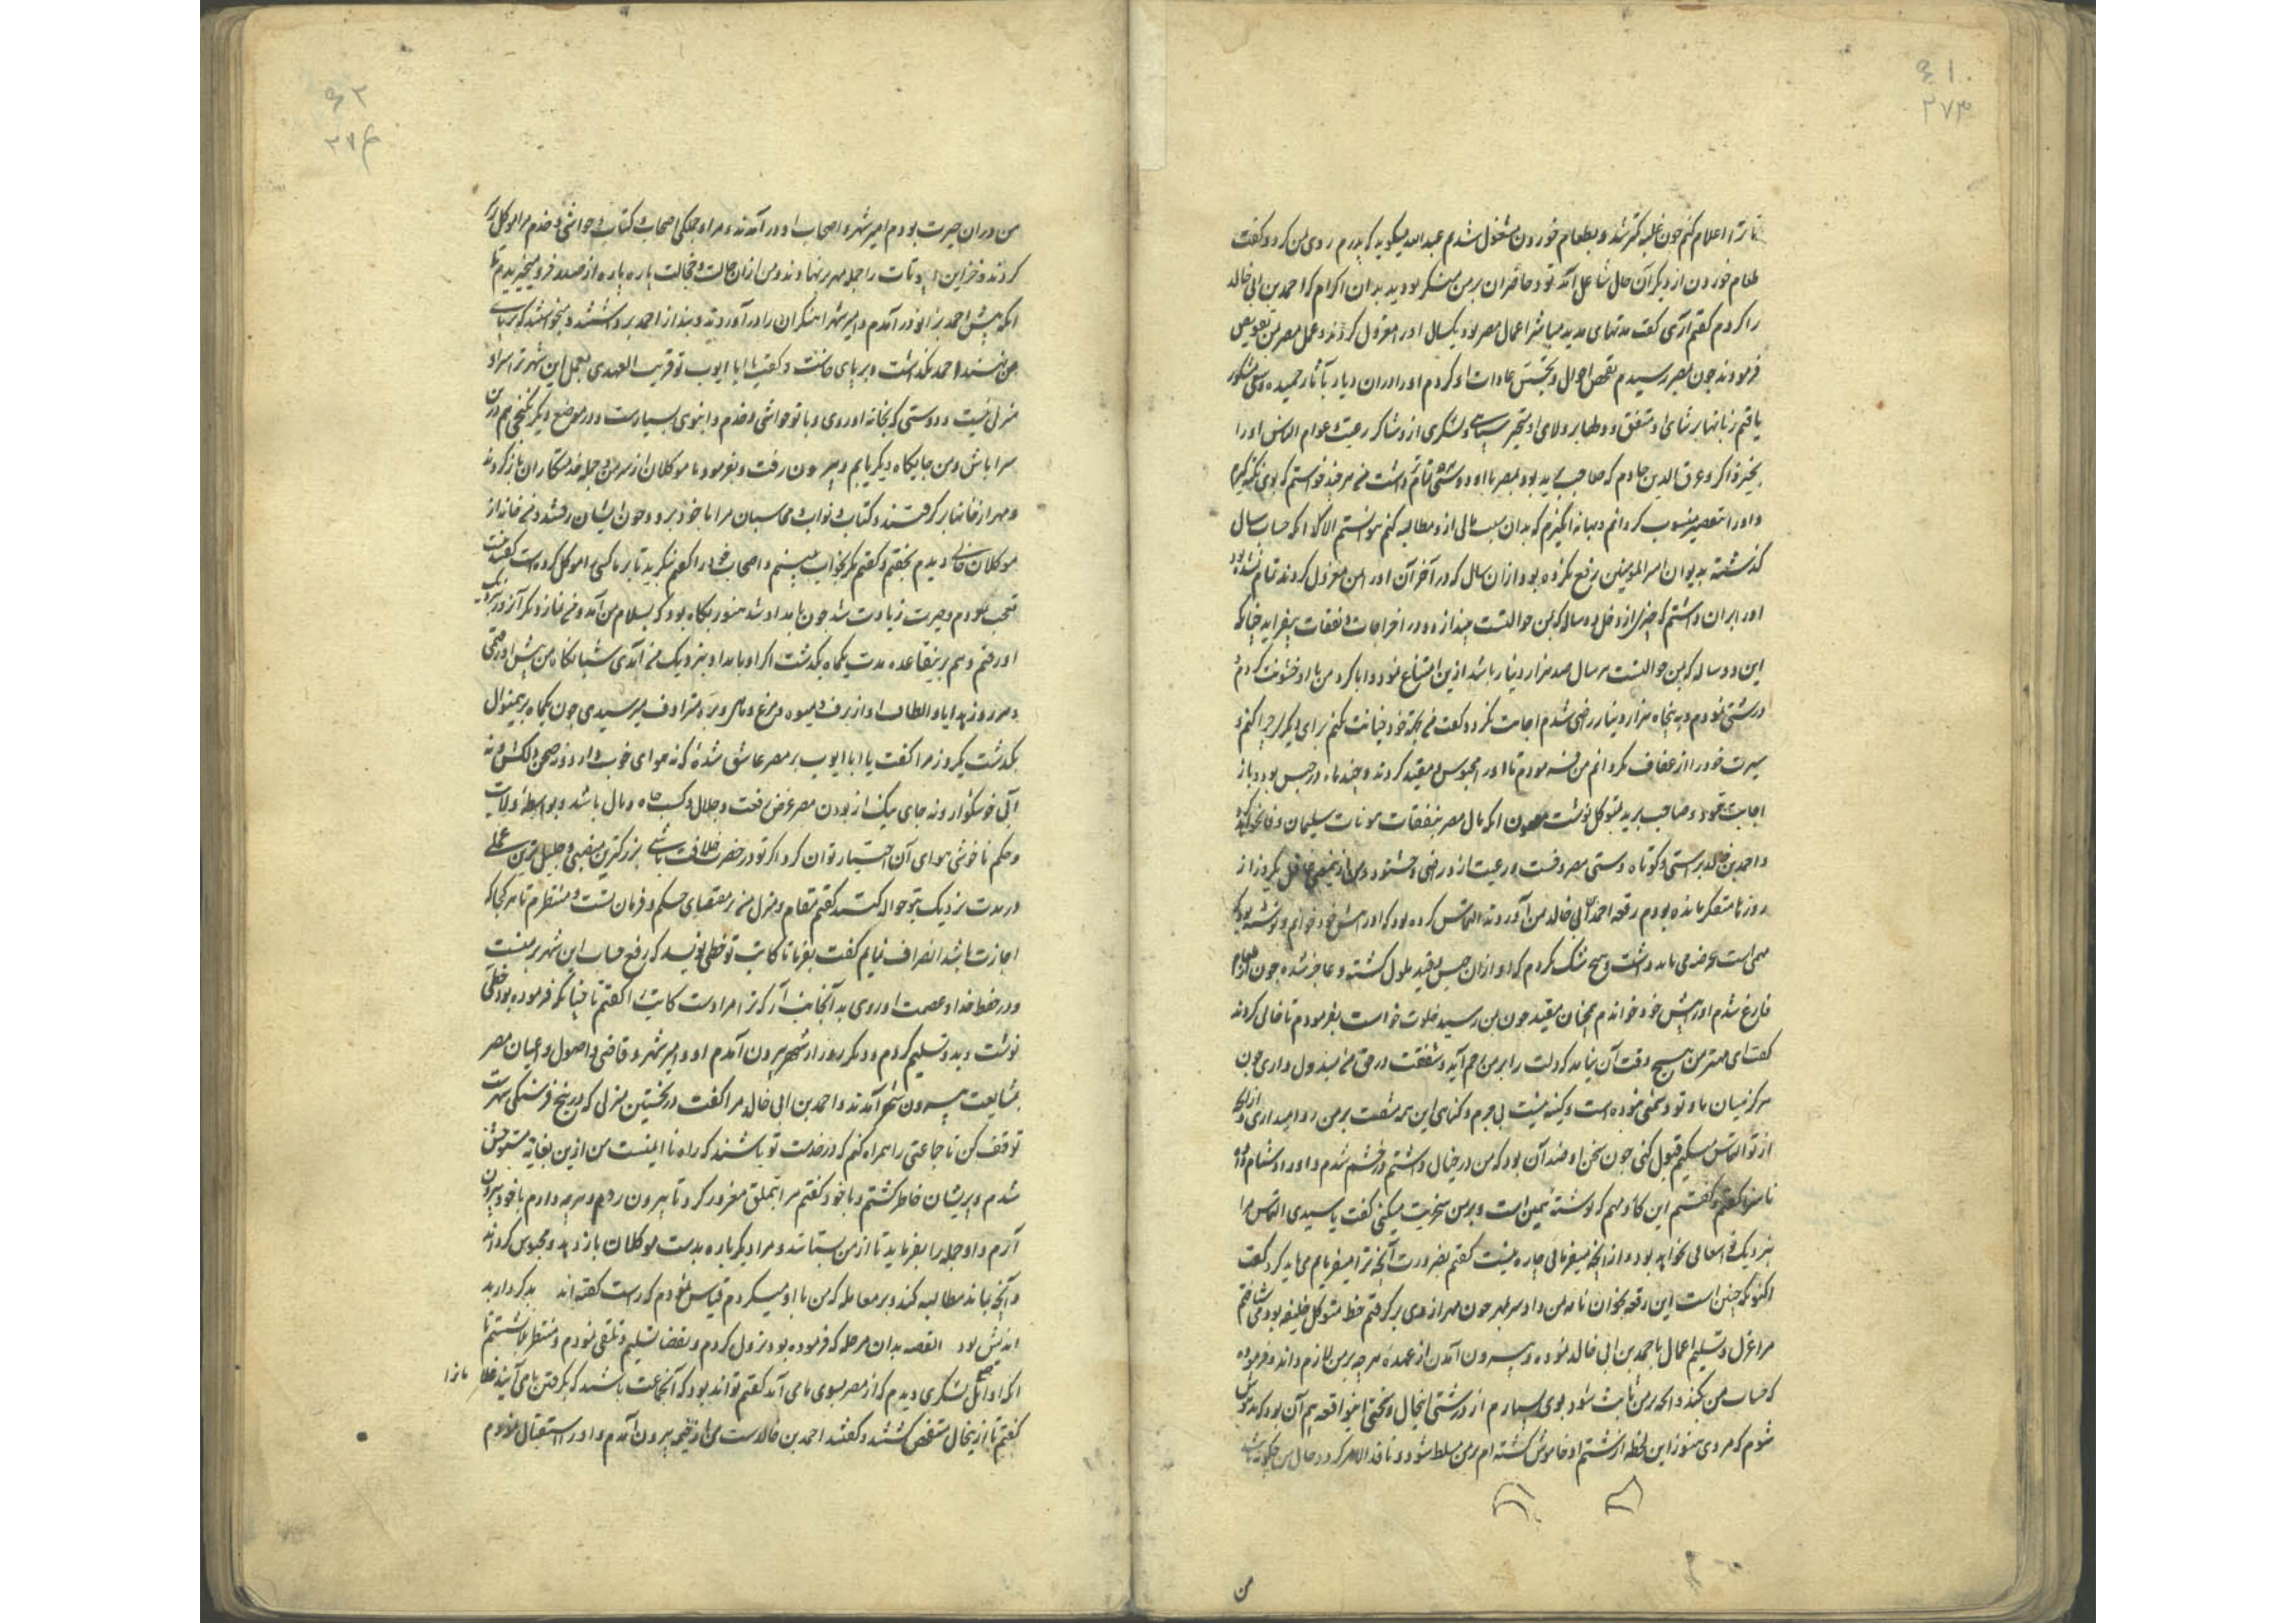 ۶۱۰
۲۷۳
تا ترا اعلام کنم چون غلبه کمتر شد و بطعام خوردن مشغول شدیم عبدالله میکوید که پدرم روی بمن کرد و کفت
طعام خوردن از دیکر آن حال شاغل آمد تو و حاضران بر من منکر بودید بدان اکرام که احمد بن ابی خالد
را کردم کفتم آری کفت مدتهای مدید مباشر اعمال مصر بود یکسال او را معزول کردند و عمل مصر بمن تفویض
فرمودند چون بمصر رسیدم تفحص احوال و تجسس عادات او کردم او را در آن دیار بآثار حمیده و سعی مشکور
یافتم زبانها بر ثنای او متفق و طبایع بر ولای او سپاهی و لشکری ازو شاکر رعیت و عوام الناس او را
بخیر ذاکر و عرق الدین خادم که صاحب برید بود بمصر با او دوستی تمام داشت من هر چند خواستم که بوی نکته کیرم
و او را بتقصیر منسوب کردانم و بهانه انکیزم که بدان سبب مالی ازو مطالبه کنم نتوانستم الا آنکه حساب سال
کذشته بدیوان امیر المومنین رفع نکرده بود و از آن سال که در آخر آن او را معزول کردند تمام نشده بود
او را بر آن داشتم که چیزی از دخل دو ساله که بمن حوالتست بیندازد و در اخراجات و نفقات بیفزاید چنانکه
این دو ساله که بمن حوالتست هر سال صد هزار دینار باشد ازین امتناع نمود و ابا کرد من با او خشونت کردم و
درشتی نمودم و به پنجاه هزار دینار راضی شدم اجابت نکرد و کفت من بجهت خود خیانت نکنم برای دیکری چرا کنم و
سیرت خود را از عفاف نکردانم من فرمودم تا او را محبوس و مقید کردند و چند ماه در حبس بود و باز
اجابت ننمود و صاحب برید بمتوکل نوشت مضمون آنکه مال مصر بنفقات مونات سلیمان وفا نخواهد کرد
و احمد بن خالد براستی و کوتاه دستی معروفست و رعیت ازو راضی و خشنود و من ازین معنی غافل یکروز از
روزها متفکر مانده بودم رقعه احمد بن ابی خالد بمن آوردند التماس کرده بود که او را پیش خود خوانم و نوشته بود که
مهمی است عرضه می باید داشت و هیچ شک نکردم که او از آن حبس و قید ملول کشته و عاجز شده چون از طعام
فارغ شدم او را پیش خود خواندم همچنان مقید چون بمن رسید خلوت خواست بفرمودم تا خالی کردند
کفت ای مهتر من هیچ وقت آن نیامد که دلت را بر من رحم آید و شفقت در حق من مبذول داری چون
هرکز میان ما و تو دشمنی نبوده است و کینه نیست بی جرم و کناهی این همه مشقت بر من روا میداری و از آنچه
از تو التماس میکنم قبول کنی چون سخن او ضد آن بود که من در خیال داشتم در خشم شدم و او را دشنام دادم و
ناسزا کفتم و کفتم این کار مهم که نوشته همین است و بر من سخریت میکنی کفت یا سیدی التماس مرا
بنزدیک تو اسعافی نخواهد بود و از آنچه میفرمائی چاره نیست کفتم بضرورت آنچه ترا میفرمایم می باید کرد کفت
اکنون که چنین است این رقعه بخوان نامه بمن داد سر بمهر چون مهر از وی بر کرفتم خط متوکل خلیفه بود می شناختم
مرا عزل و تسلیم اعمال باحمد بن ابی خالد نموده و بیرون آمدن از عهده هر چه بر من لازم داند و فرموده
که حساب من بکند و آنچه بر من ثابت شود بوی سپارم از درشتی آنحال و سختی این واقعه بیم آن بود که مدهوش
شوم که مردی هنوز این لحظه از شتم او خاموش کشته ام بر من مسلط شود و نافذ الامر کرد و حال من چکونه باشد
من
۶۲
۲۷۴
من در آن حیرت بودم امیر شهر و اصحاب او در آمدند و مرا و جملکی اصحاب و کتاب و حواشی و خدم مرا موکل
کردند و خزاین و بیوتات را جمله مهر بر نهادند و من از آن حالت و خجالت پاره پاره از صدر فرو میخیزیدم تا
آنکه پیش احمد بزانو در آمدم و امیر شهر آهنکران را در آوردند و بند از احمد برداشتند و میخواستند که بر پای
من نهند احمد نکذاشت و بر پای خاست و کفت یا ابا ایوب تو قریب العهدی بعمل این شهر ترا سرا و
منزل نیست و دوستی که بخانه او روی و با تو حواشی و خدم و انبوهی بسیارست و در موضع دیکر نکنجی هم درین
سرا باش و من جایکاه دیکر یابم و بیرون رفت و بفرمود تا موکلان از سر من و جمله خدمتکاران باز کردند
و مهر از خانها بر کرفتند و کتاب و نواب و محاسبان مرا با خود ببرد و چون ایشان رفتند و من خانه از
موکلان خالی دیدم بخفتم و کفتم مکر بخواب میبینم و اصحاب خود را کفتم بنکرید تا بر ما کسی را موکل کرده است کفتند نیست
تعجب نمودم و حیرت زیادت شد چون بامداد شد هنوز بکاه بود که بسلام من آمد و من نماز دیکر آنروز بنزدیک
او رفتم و هم برین قاعده مدت یکماه بکذشت اکر او بامداد بنزدیک من آمدی شبانکاه من پیش او رفتمی
و هر روز هدایا و الطاف او از برف و میوه و مرغ و ماهی و بره مترادف میرسیدی چون یکماه برین منوال
بکذشت یکروز مرا کفت یا ابا ایوب بر مصر عاشق شده که نه هوای خوب دارد و نه صحن دلکش و نه
آبی خوشکوار و نه جای نیک از بودن مصر عوض رفعت و جلال و کسب جاه و مال باشد و بواسطه ولایت
و حکم ناخوشی هوای آن اختیار توان کرد اکر تو در حضرت خلافت باشی بزرکترین منصبی و جلیل ترین عملی
در مدت نزدیک بتو حواله کنند کفتم مقام و منزل من بر مقتضای حکم و فرمان تست و منتظرم تا هر کجا که
اجازت باشد انصراف نمایم کفت بفرما تا کاتب تو خطی نویسد که رفع حساب این شهر بر منست
و در حفظ خدا و عصمت او روی بدآنجانب آر که ترا مرادست کاتب را کفتم تا چنانکه فرموده بود خطی
نوشت و بدو تسلیم کردم و دیکر روز از شهر بیرون آمدم او و امیر شهر و قاضی و اصول و اعیان مصر
بمشایعت بیرون شهر آمدند و احمد بن ابی خالد مرا کفت در نخستین منزلی که در پنج فرسنکی شهرست
توقف کن تا جماعتی را همراه کنم که در خدمت تو باشند که راه نا ایمنست من ازین بغایت مشوش
شدم و پریشان خاطر کشتم و با خود کفتم مرا بتملق مغرور کرد تا بیرون روم و هر چه دارم با خود بیرون
آرم و او جمله را بفرماید تا از من بستانند و مرا دیکرباره بدست موکلان باز دهد و محبوس کرداند
و آنچه بماند مطالبه کند و بر معامله که من با او میکردم قیاس نمودم که راست کفته اند بد کردار بد
اندیش بود القصه بدان مرحله که فرموده بود نزول کردم و بقضا تسلیم و تلقی نمودم و منتظر بنشستم تا
آنکه اوایل صبح لشکری دیدم که از مصر بسوی ما می آمد کفتم تواند بود که آنجماعت باشند که بکرفتن ما می آیند غلامانرا
کفتم تا از آنحال متفحص کشتند و کفتند احمد بن خالدست من از خیمه بیرون آمدم و او را استقبال نمودم